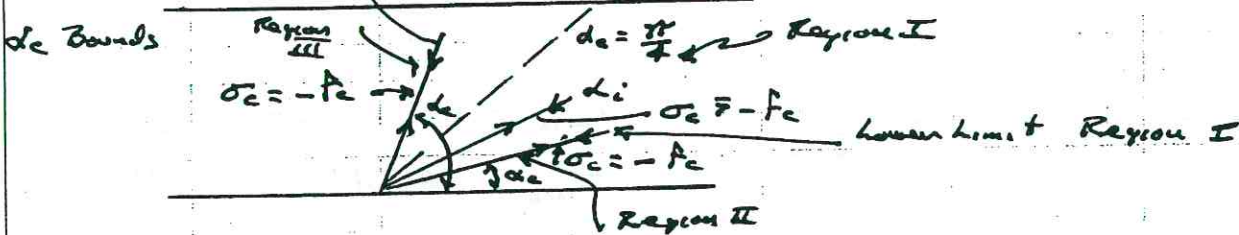 αc Bounds
Region III
αc = π/4
Region I
σc = -fc
αc
αi
σc ≠ -fc
Lower Limit Region I
σc = -fc
αc
Region II